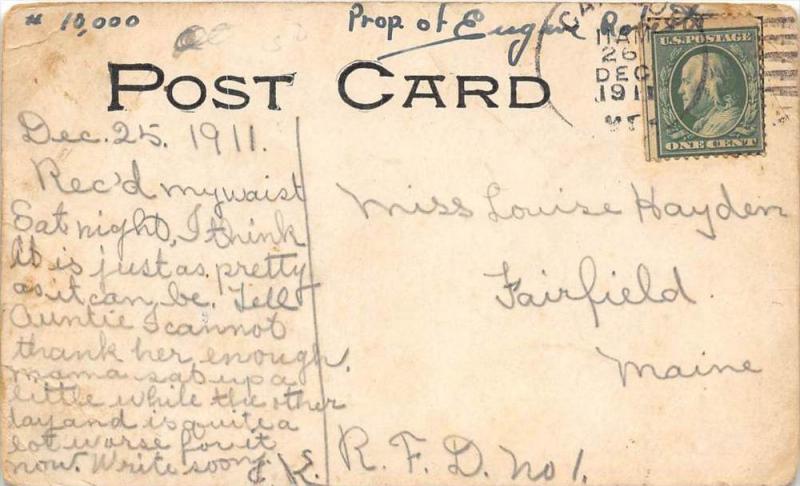 # 10,000
Prop of Eugene
11 AM
26
DEC
1911
U.S. POSTAGE
ONE CENT
POST CARD
Dec. 25, 1911.
Rec'd my waist
Sat night, I think
it is just as pretty
as it can be. Tell
Auntie I cannot
thank her enough.
Mama sat up a
little while the other
day and is quite a
lot worse for it
now. Write soon,
K.
Miss Louise Hayden
Fairfield.
Maine
R. F. D. No 1.